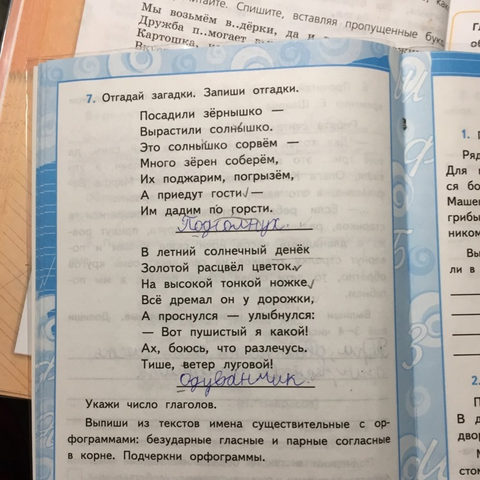 читайте. Спишите, вставляя пропущенные бук
Мы возьмём в..дёрки, да и
Дружба п..могает
Картошка,
7. Отгадай загадки. Запиши отгадки.
Посадили зёрнышко —
Вырастили солнышко.
Это солнышко сорвём —
Много зёрен соберём,
Их поджарим, погрызём,
А приедут гости —
Им дадим по горсти.
Подсолнух
В летний солнечный денёк
Золотой расцвёл цветок.
На высокой тонкой ножке,
Всё дремал он у дорожки,
А проснулся — улыбнулся:
— Вот пушистый я какой!
Ах, боюсь, что разлечусь.
Тише, ветер луговой!
одуванчик
Укажи число глаголов.
Выпиши из текстов имена существительные с ор-
фограммами: безударные гласные и парные согласные
в корне. Подчеркни орфограммы.
1.
Ряд
Для
ся бо
Маше
грибы
ником
Вы
ли в
2.
П
В д
двор
М
стом